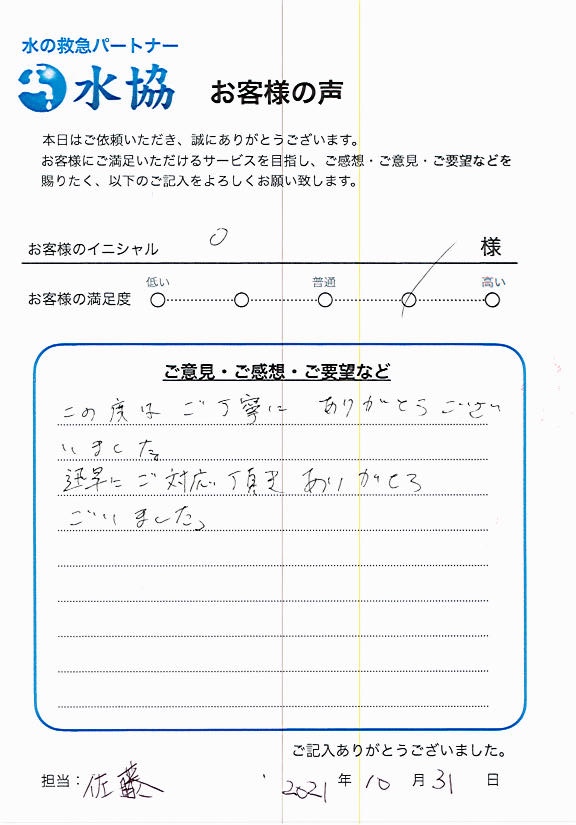 水の救急パートナー
水協
お客様の声
本日はご依頼いただき、誠にありがとうございます。
お客様にご満足いただけるサービスを目指し、ご感想・ご意見・ご要望などを
賜りたく、以下のご記入をよろしくお願い致します。
お客様のイニシャル O 様
低い 普通 高い
お客様の満足度
ご意見・ご感想・ご要望など
この度は ご丁寧に ありがとうござい
いました。
迅早に ご対応 頂き ありがとう
ございました。
ご記入ありがとうございました。
担当：佐藤 2021 年 10 月 31 日